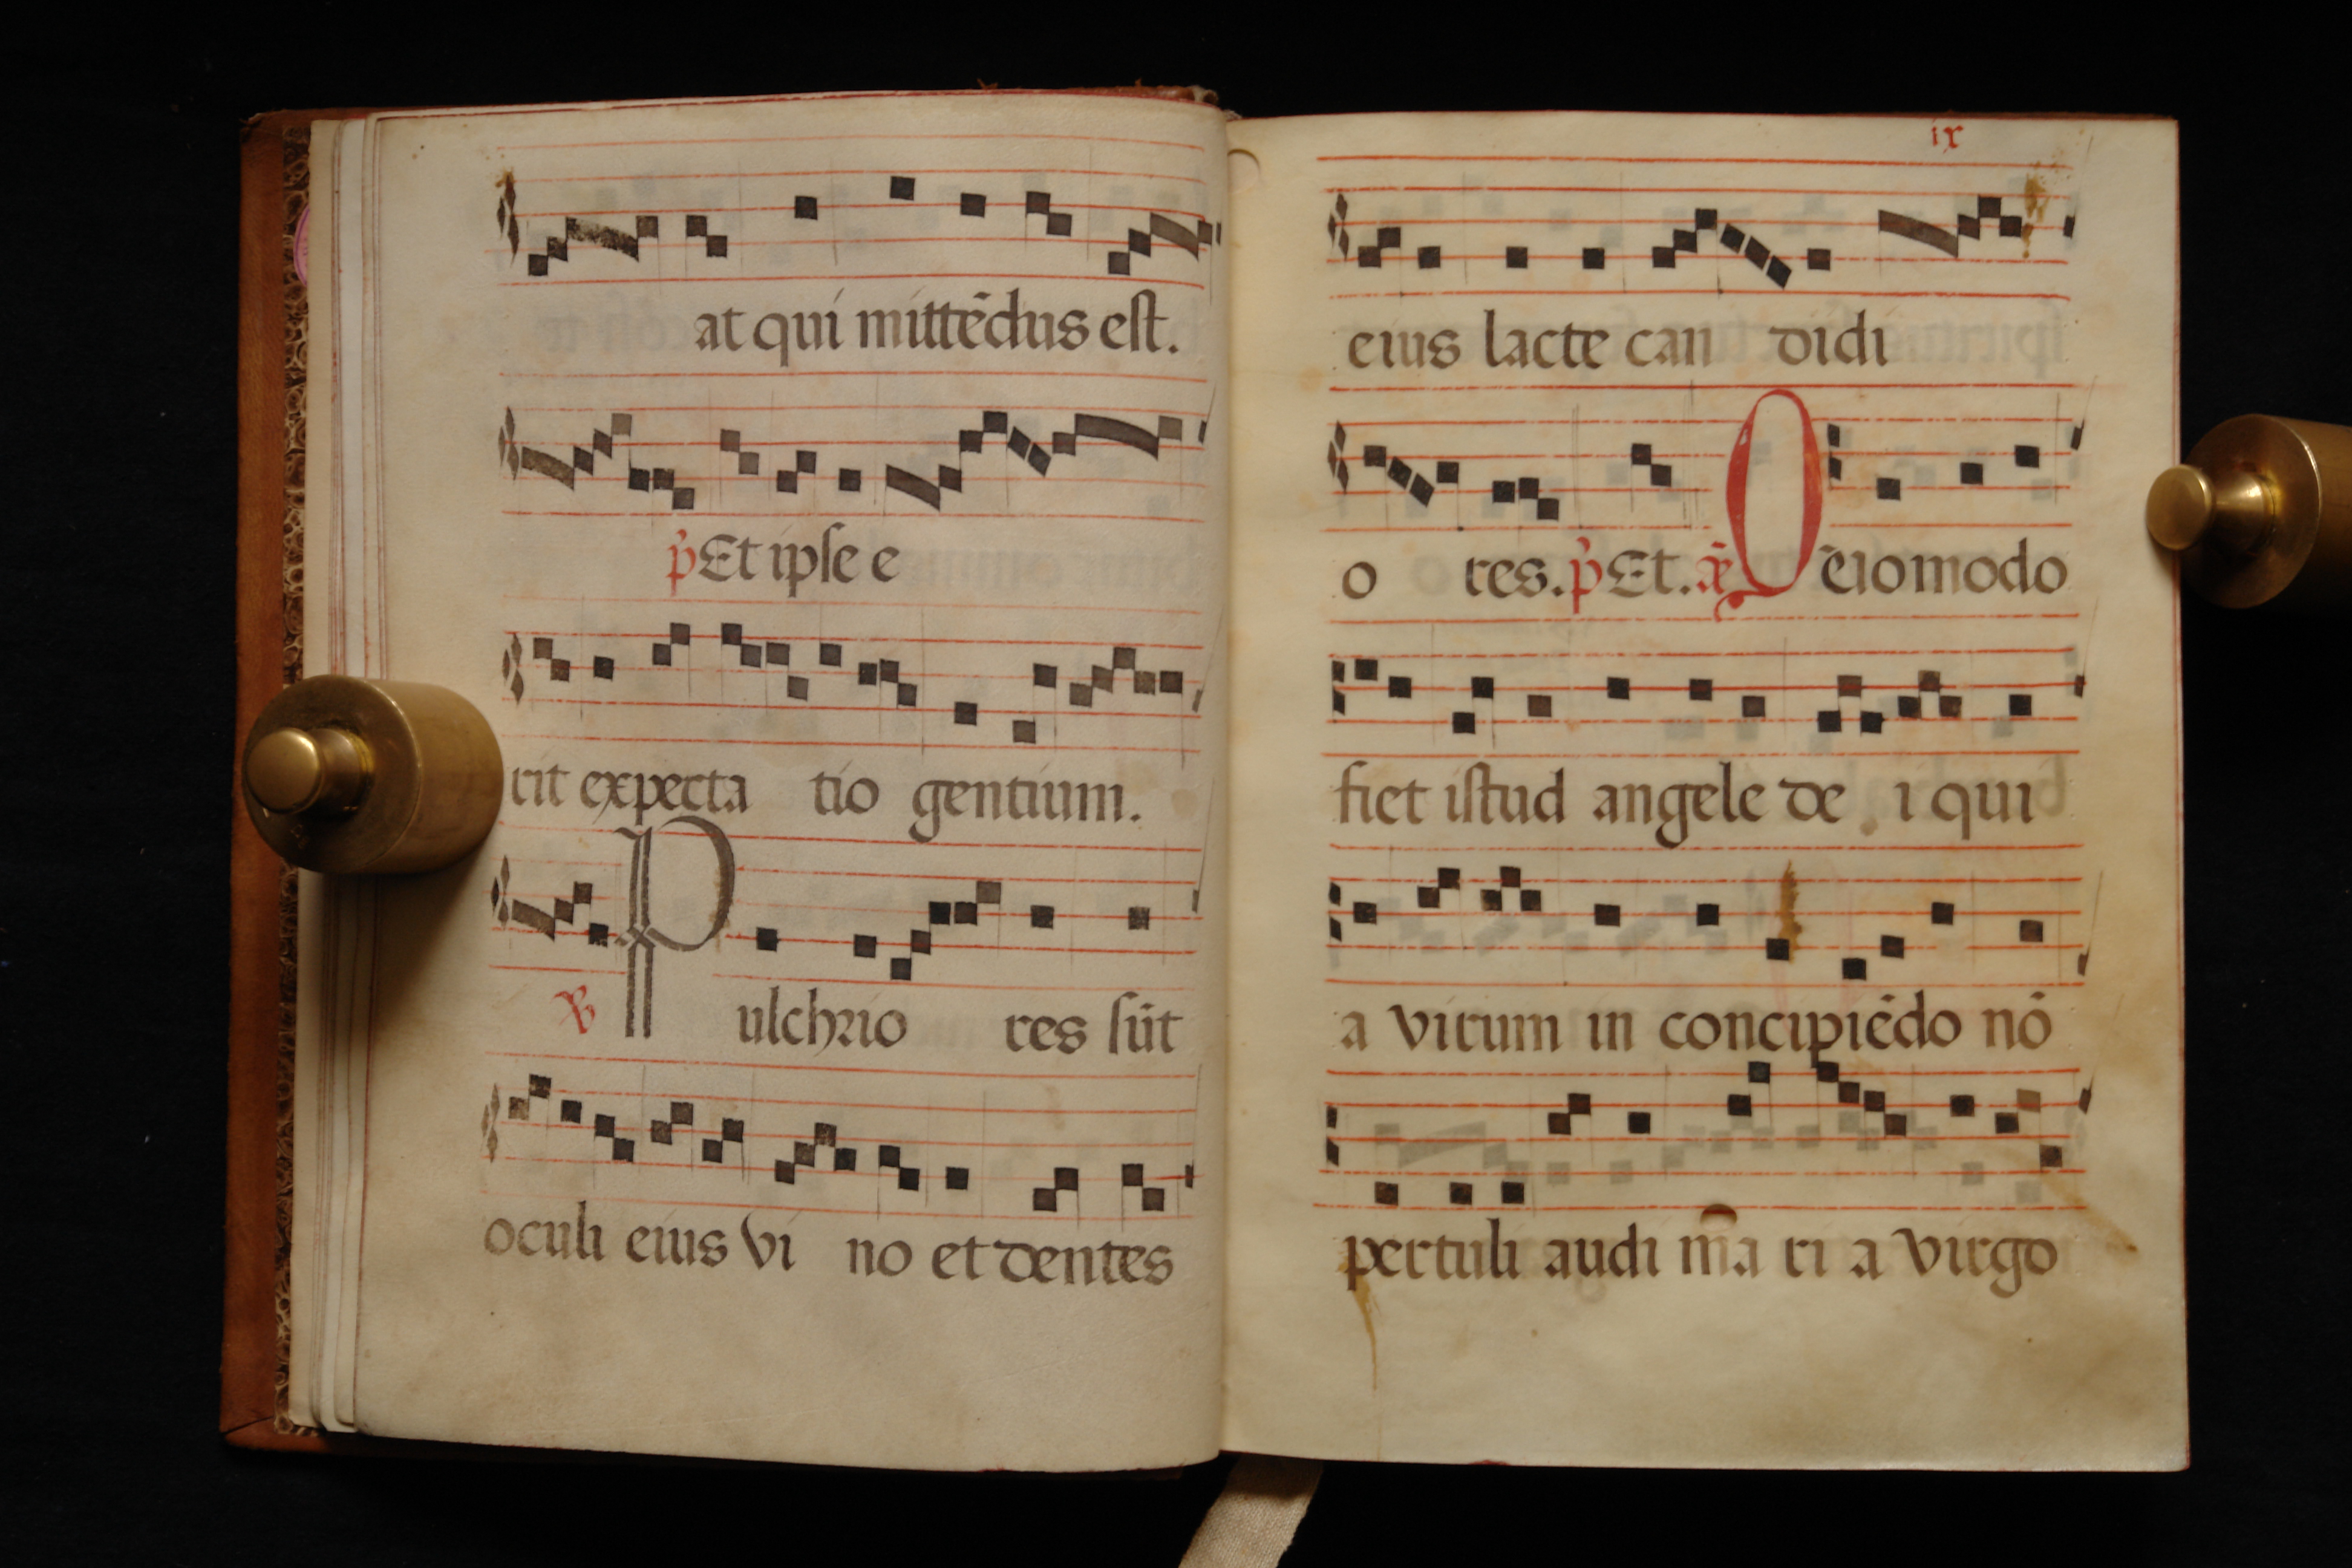 at qui mittēdus est.
p̄ Et ipse e
rit expecta tio gentium.
℣ Pulchrio res sūt
oculi eius vi no et dentes
ix
eius lacte can didi
o res. p̄ Et. ā Q ēiomodo
fiet istud angele de i qui
a virum in concipiēdo nō
pertuli audi m̄a ri a virgo